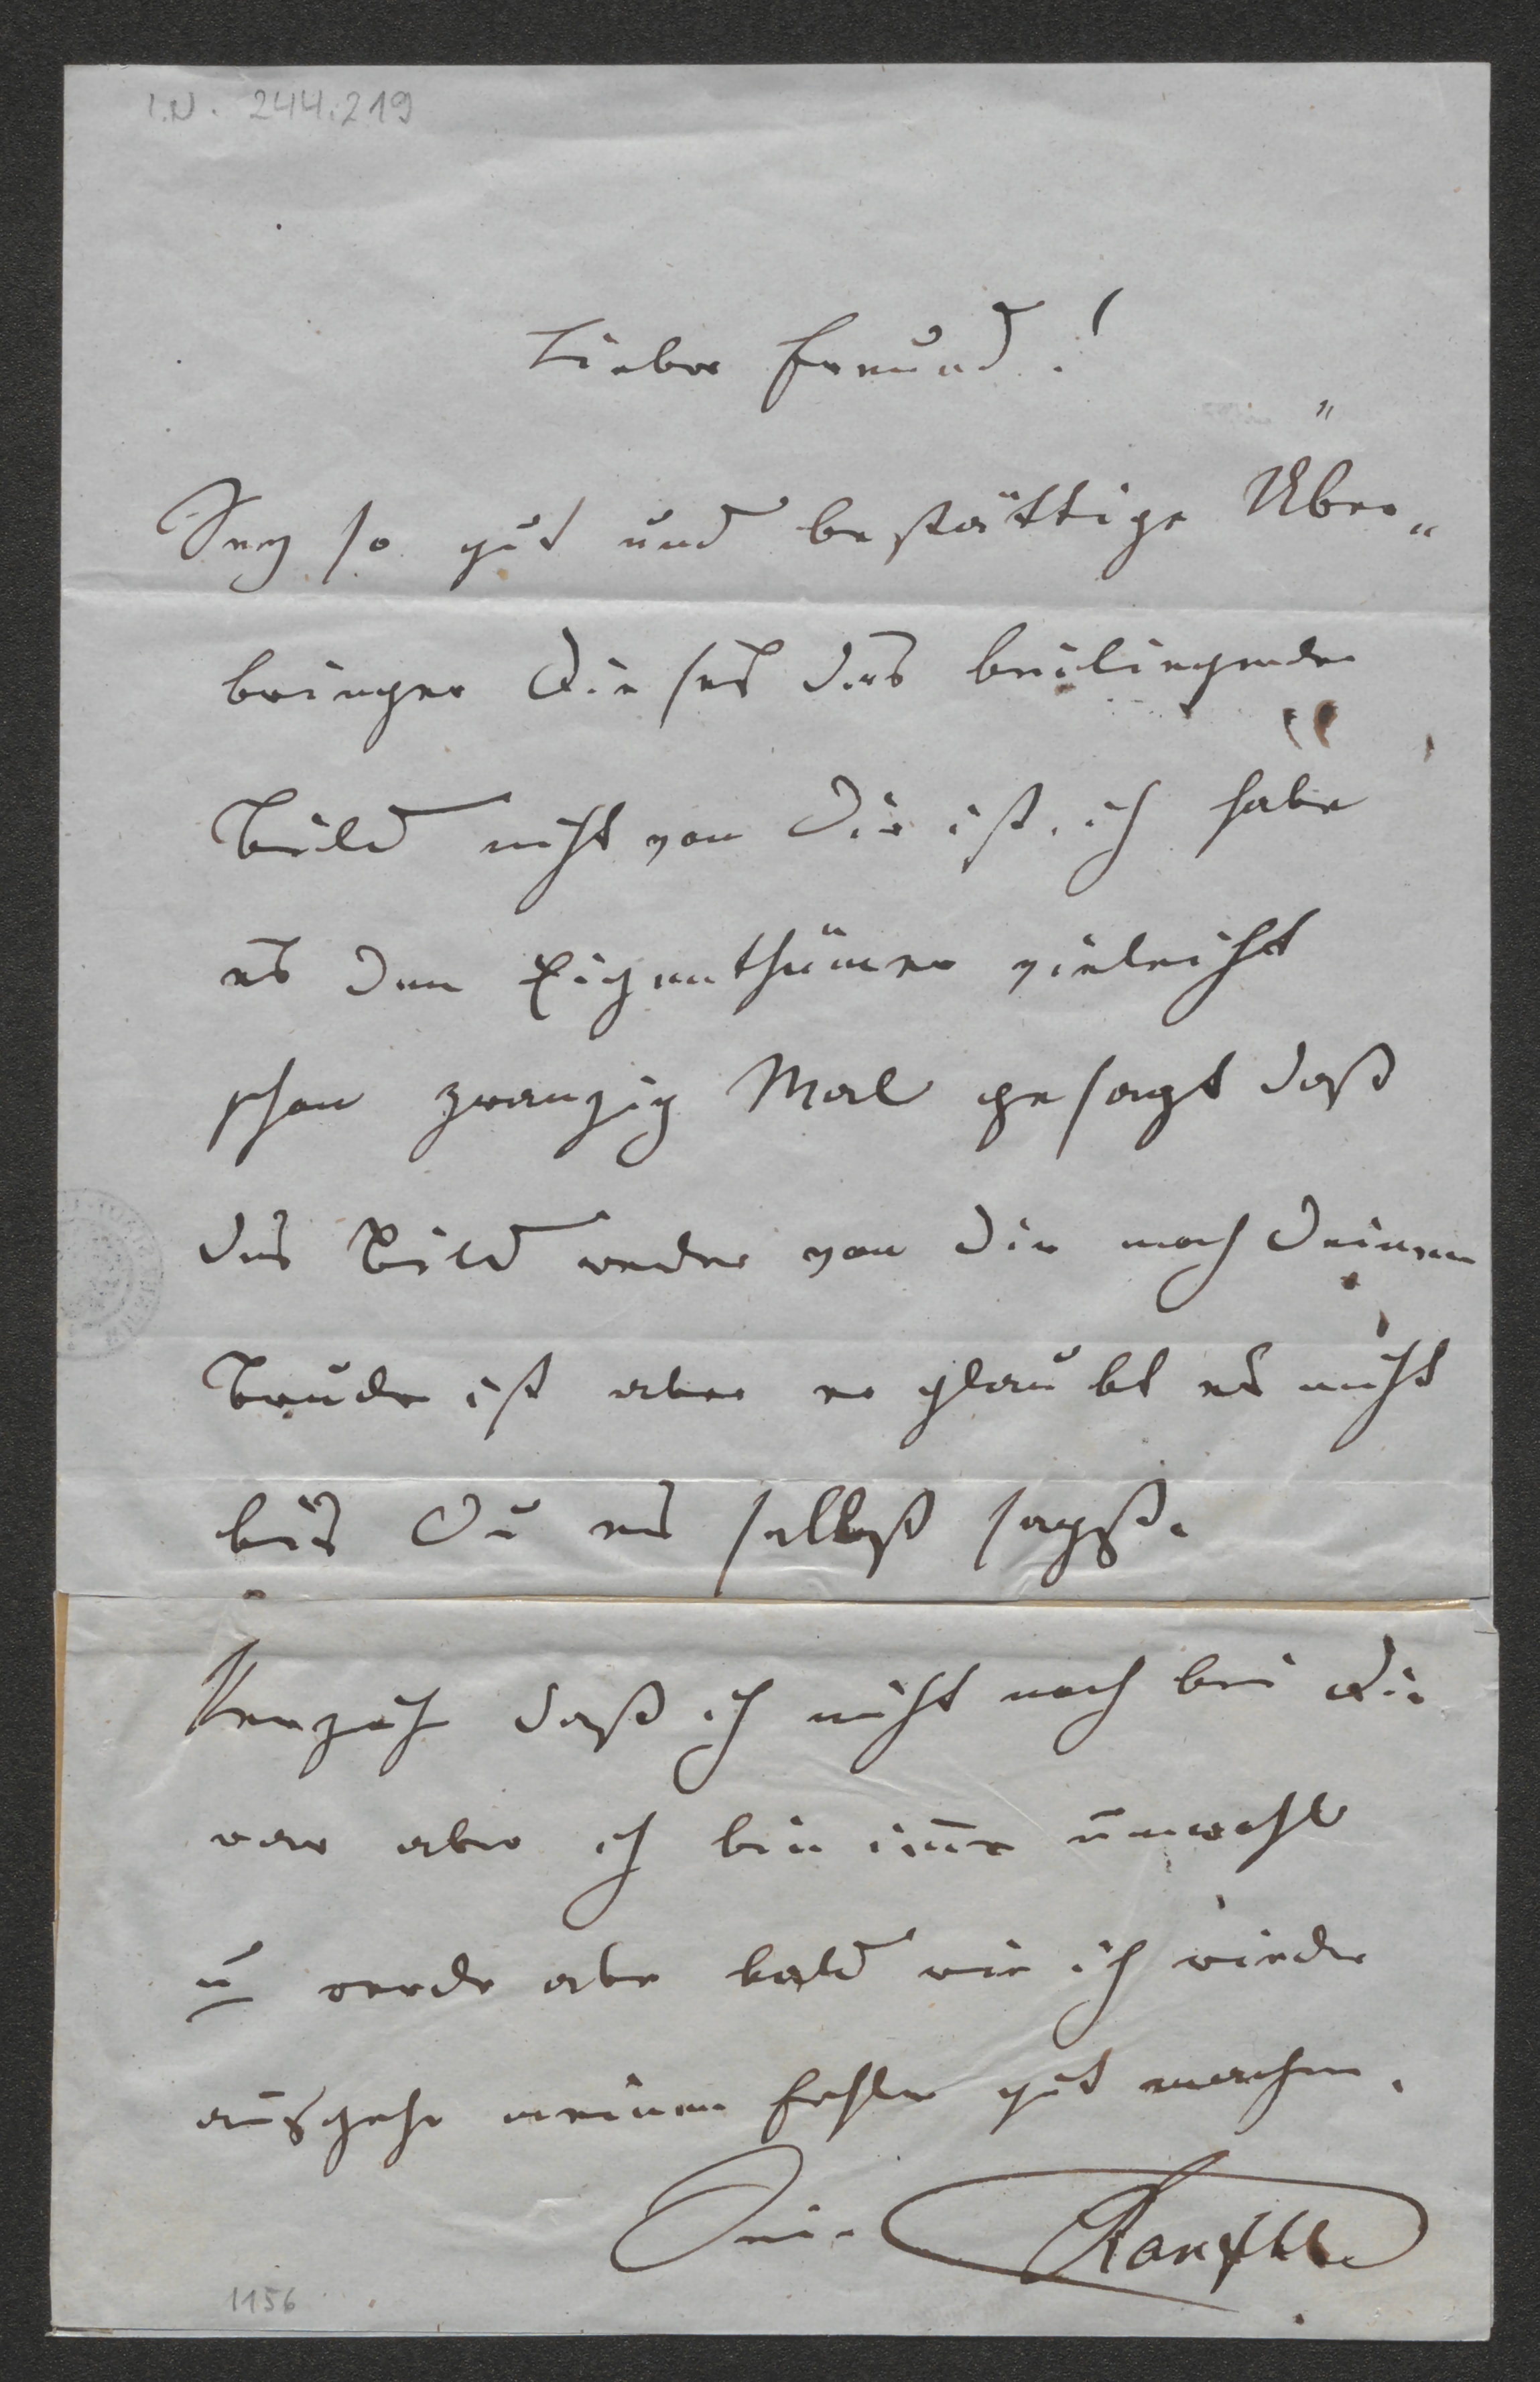 I.N. 244.219
Lieber Freund!
Sey so gut und bestättige Über„
bringer Dieses das beiliegende
Bild nicht von Dir ist, ich habe
es dem Eigenthümer vieleicht
schon zwanzig Mal gesagt daß
das Bild weder von Dir noch Deinem
Bruder ist aber er glaubt es nicht
bis Du es selbst sagst.
Verzeih daß ich nicht noch bei Dir
war aber ich bin immer unwohl
u werde aber bald wie ich wieder
ausgehe meinen Fehler gut machen.
Dein Ranftl
1156